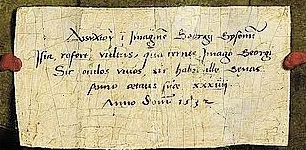 Δισίχιον ĩ Imaginẽ Georgij Gysenij
Ista refert vultus, quã cernis, Imago Georgi
Sic oculos viuos, sic habet ille genas
Anno aetatis suæ xxxiiij
Anno dom 1532